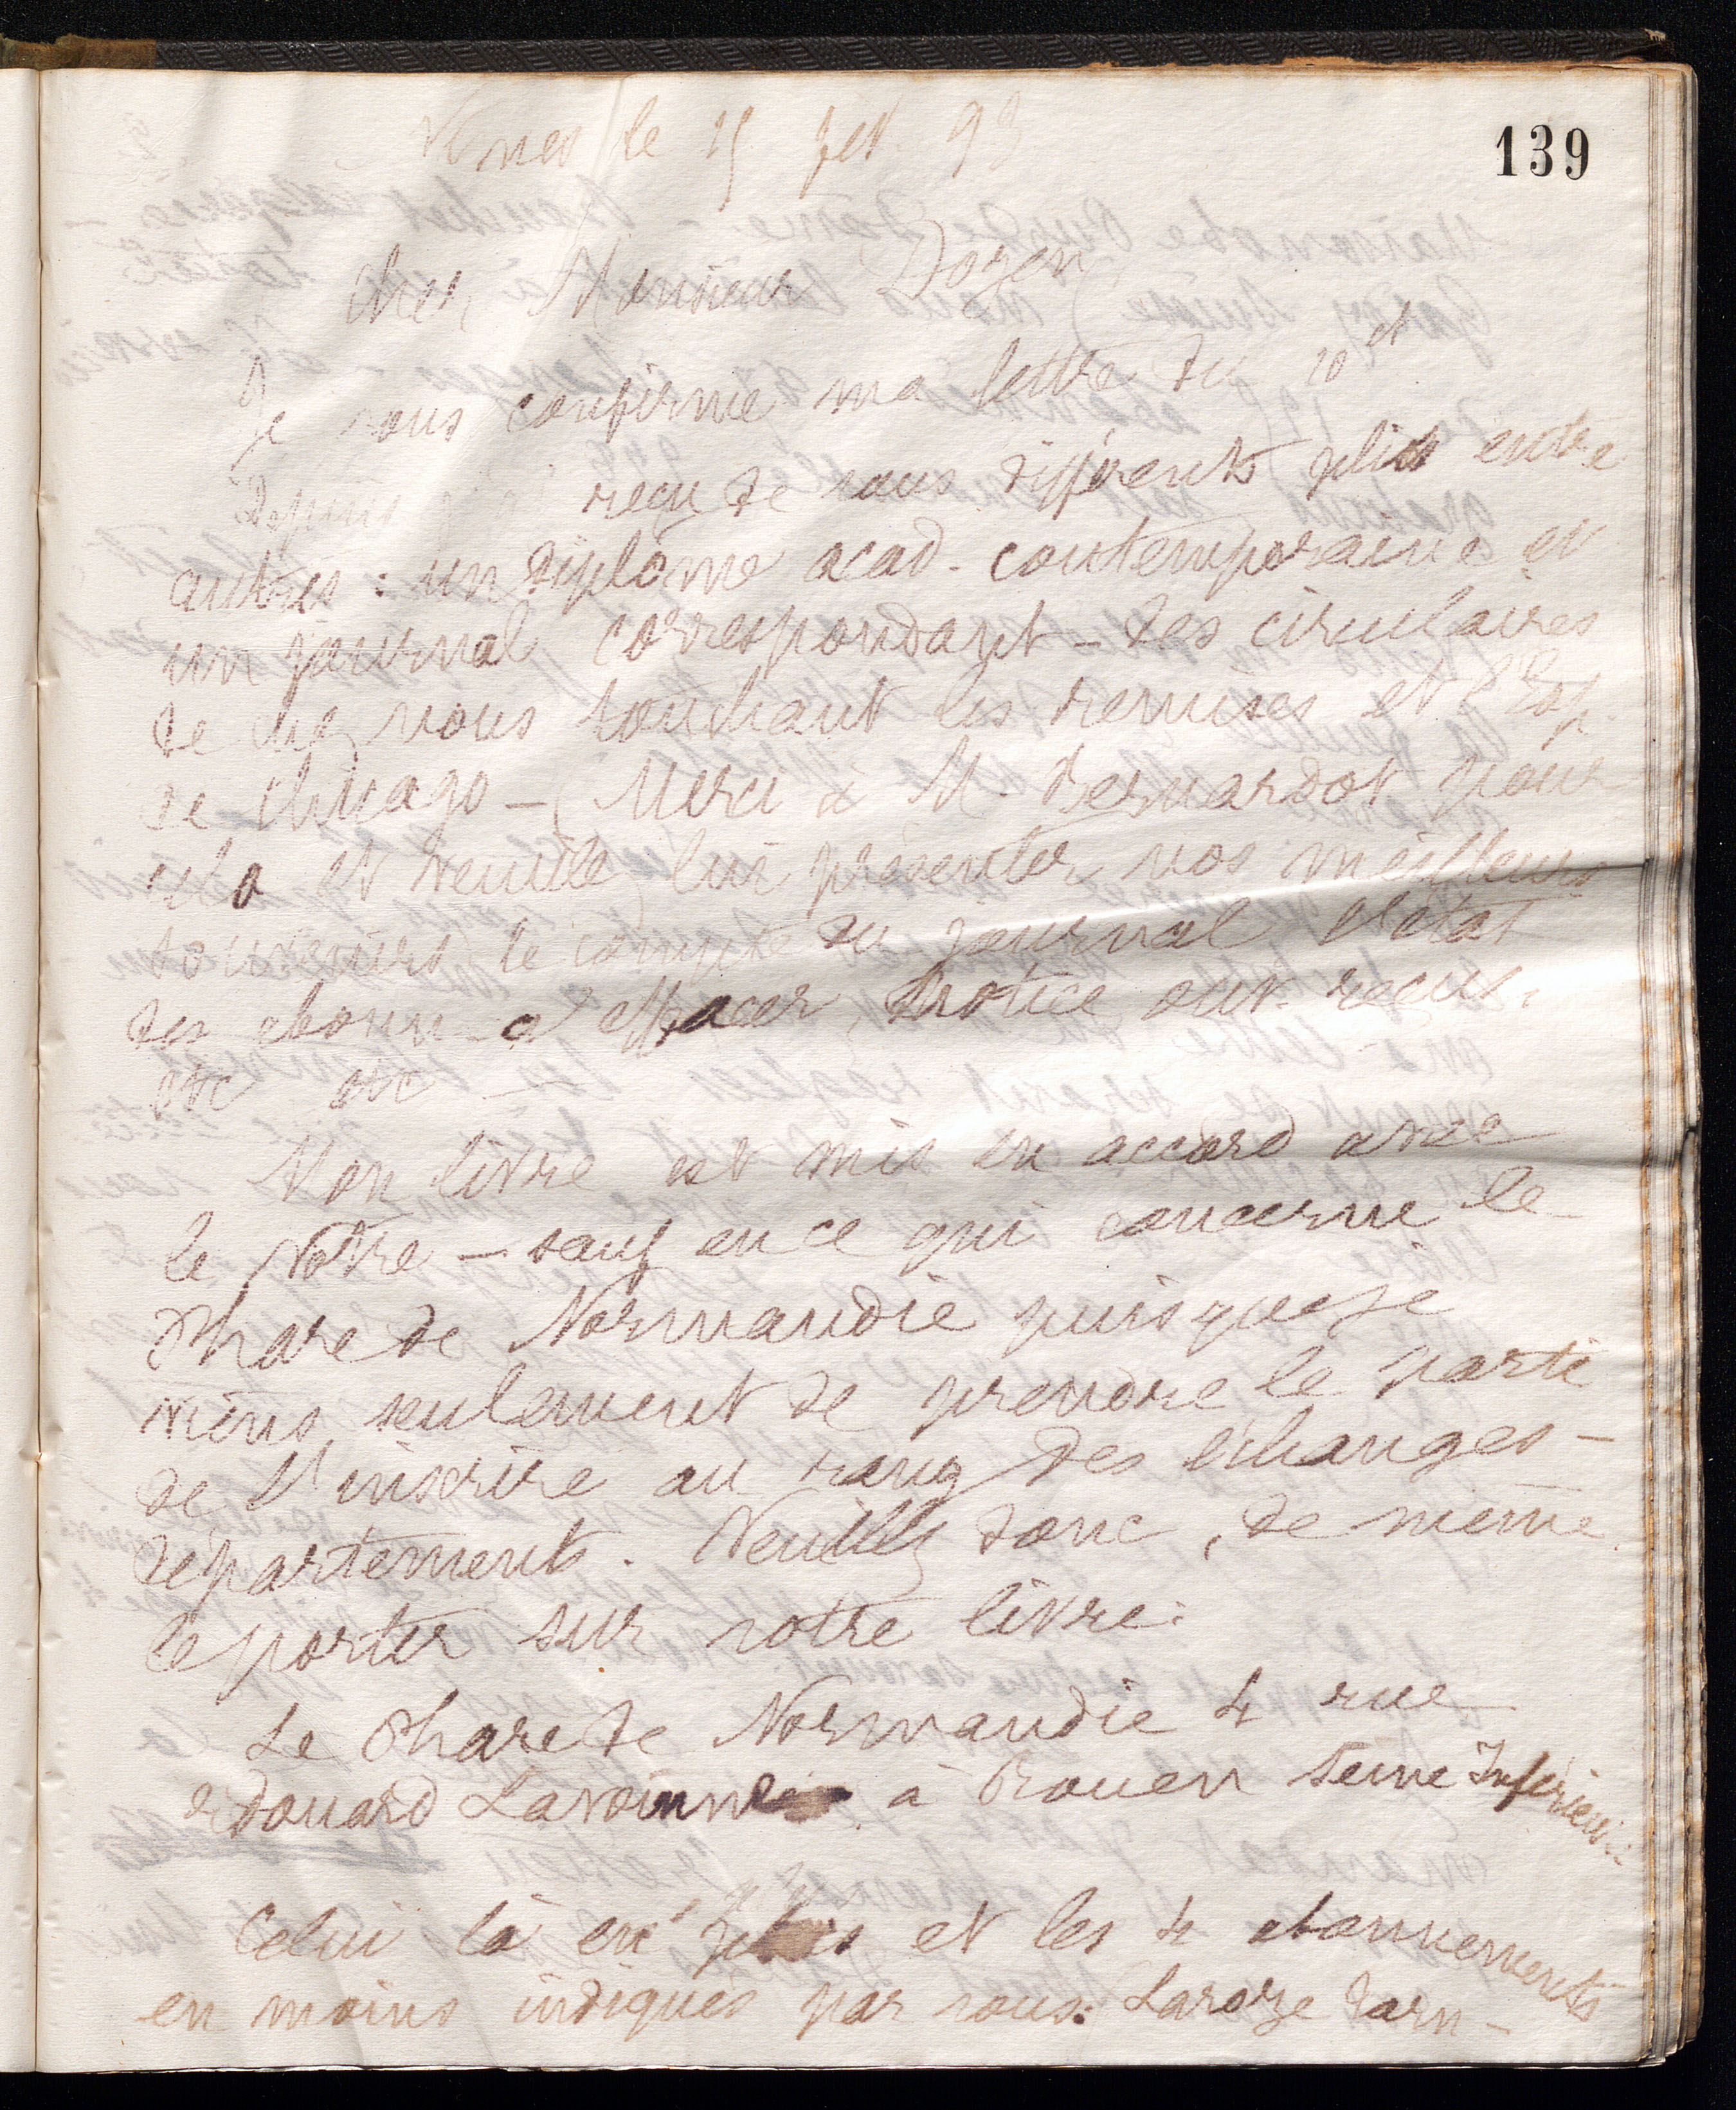 139
Nimes le 15 fev. 93
Cher Monsieur Doyen
Je vous confirme ma lettre du 10 et
Depuis reçu de vous différents plis entre
autres : un diplôme acad. contemporaine et
un journal correspondant – des circulaires
de vous touchant les remises et l'Exp.
de Chicago – Merci à M. Bernardot pour
cela et veuillez lui présenter nos meilleurs
souvenirs le compte du journal l'état
des abonn. à effacer, notice ont reçus.
etc etc –
Mon livre est mis en accord avec
le vôtre – sauf en ce qui concerne le
Phare de Normandie puisque je
viens seulement de prendre le parti
de l'inscrire au rang des échanges –
départements. Veuillez donc, de même
le porter sur votre livre :
Le Phare de Normandie 4 rue
Edouard Lavoinne à Rouen Seine Inférieure
Celui là en plus et les 4 abonnements
en moins indiqués par vous : Laroze Tarn –